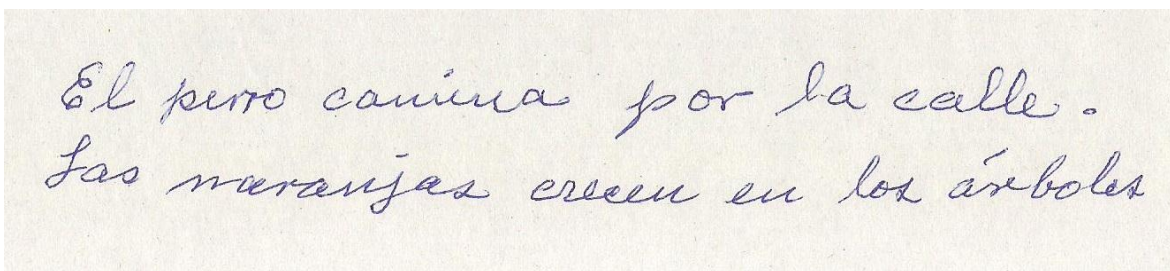 El perro camina por la calle.
Las naranjas crecen en los árboles